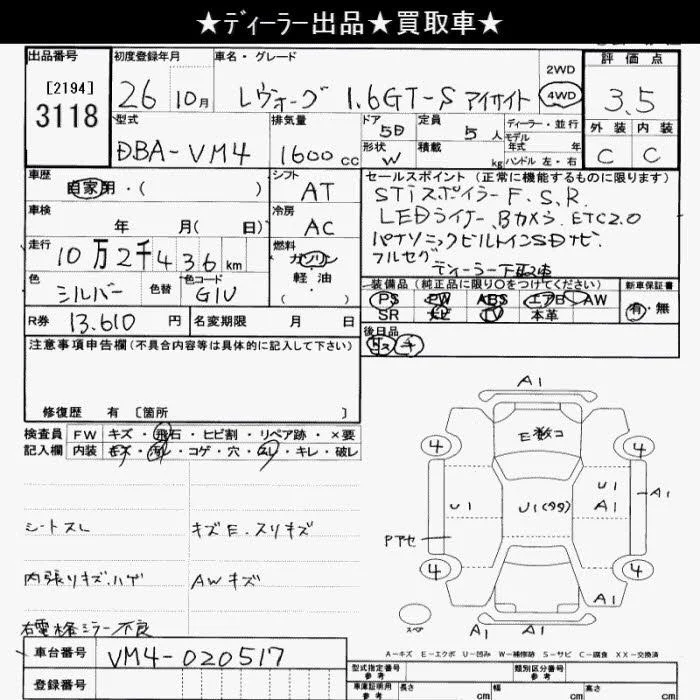 ★ディーラー出品★買取車★
出品番号 初度登録年月 車名・グレード 評価点
[2194]
3118
26 10月 レヴォーグ 1.6GT-S アイサイト 2WD 4WD 3.5
型式 排気量 ドア 5D 定員 5人 ディーラー・並行 外装 内装
モデル年式 年
DBA-VM4 1600cc 形状 W 積載 kg ハンドル 左・右 C C
車歴 シフト セールスポイント(正常に機能するものに限ります)
自家用・( ) AT STiスポイラーF.S.R.
車検 冷房 LEDライナー、Bカメラ、ETC2.0
年 月(日) AC パナソニックビルトインSDナビ.
走行 燃料 フルセグ
10万2千436km ガソリン ディーラー下取車
軽油・( )
色 色替 色コード 装備品(純正品に限り○をつけてください) 新車保証書
シルバー G1U PS PW ABS エアB AW 有・無
SR ナビ TV 本革
R券 13.610円 名変期限 月 日 後日品
注意事項申告欄(不具合内容等は具体的に記入して下さい)
修復歴 有 [箇所 ]
検査員 FW キズ・飛石・ヒビ割・リペア跡・×要
記入欄 内装 キズ・汚レ・コゲ・穴・スレ・キレ・破レ
A1
E数コ
4 4
U1 U1(99) U1 A1 A1
Pアセ
シートスレ キズE.スリキズ
4 4
内張りキズ.ハゲ AWキズ
スペア A1 A1
右電格ミラー不良
A-キズ E-エクボ U-凹み W-補修跡 S-サビ C-腐食 XX-交換済
車台番号 VM4-020517
登録番号
型式指定番号 参考 類別区分番号 参考
車庫証明用 参考 長さ cm 幅 cm 高さ cm